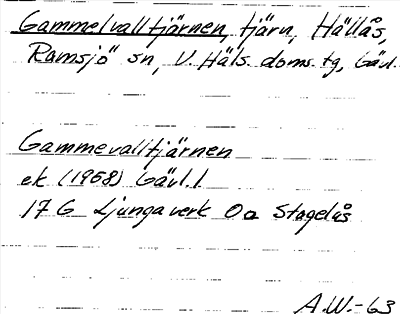 Gammelvalltjärnen, tjärn, Hällås,
Ramsjö sn, V. Häls. doms. tg, Gävl.
Gammevalltjärnen
ek (1968) Gävl. l
17 G Ljungaverk 0a Stagelås
A.W.-63